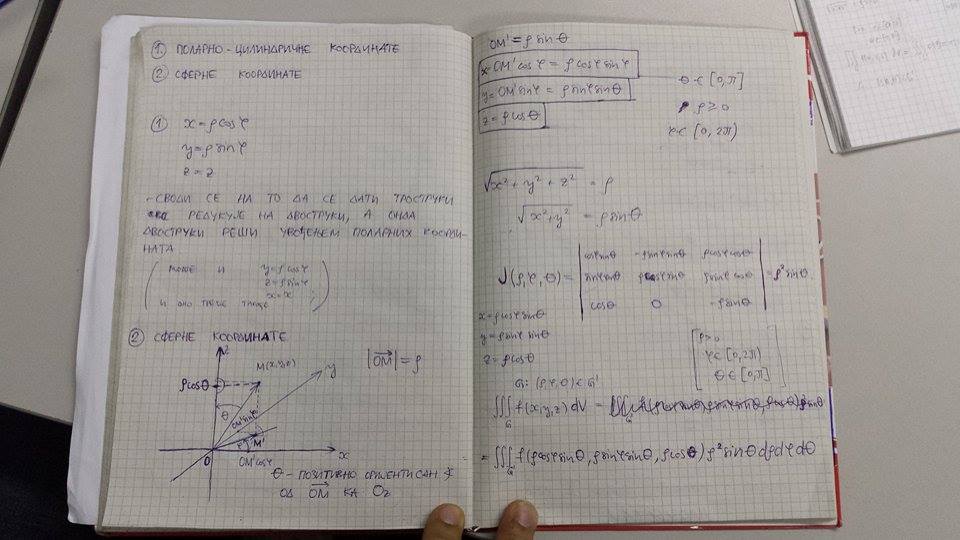 ① ПОЛАРНО-ЦИЛИНДРИЧНЕ КООРДИНАТЕ
② СФЕРНЕ КООРДИНАТЕ
① x=ρcosφ
y=ρsinφ
z=z
-СВОДИ СЕ НА ТО ДА СЕ ДАТИ ТРОСТРУКИ
РЕДУКУЈЕ НА ДВОСТРУКИ, А ОНДА
ДВОСТРУКИ РЕШИ УВОЂЕЊЕМ ПОЛАРНИХ КООРДИ-
НАТА
( МОЖЕ И y=ρcosφ
z=ρsinφ
x=x ;
И ОНО ТРЕЋЕ )
② СФЕРНЕ КООРДИНАТЕ
z
M(x,y,z)
|OM|=ρ
y
ρcosθ
θ
OM'sinφ
φ
M'
O
OM'cosφ
x
θ - ПОЗИТИВНО ОРИЈЕНТИСАН ∢
ОД OM КА Oz
OM'=ρsinθ
x=OM'cosφ=ρcosφsinφ
y=OM'sinφ=ρsinφsinθ
z=ρcosθ
θ∈[0,π]
ρ≥0
φ∈[0,2π)
√x²+y²+z² = ρ
√x²+y² = ρsinθ
J(ρ,φ,θ)= | cosφsinθ -ρsinφsinθ ρcosφcosθ
sinφsinθ ρcosφsinθ ρsinφcosθ
cosθ 0 -ρsinθ | =ρ²sinθ
x=ρcosφsinθ
y=ρsinφsinθ
z=ρcosθ
[ ρ≥0
φ∈[0,2π)
θ∈[0,π] ]
G: (ρ,φ,θ)∈G'
∭_G f(x,y,z)dV =
= ∭_G' f(ρcosφsinθ, ρsinφsinθ, ρcosθ) ρ²sinθ dρdφdθ